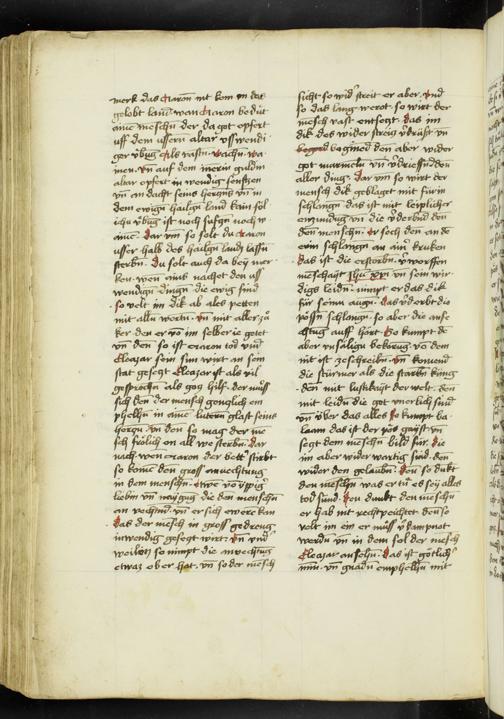 merk das Aaron nit kom in das
gelobt land wan Aaron bedüt
ainē menschn der da got opfert
uff dem ussern altar usswendi
ger v̈bug als vastn wachn wa
inen. vn̄ auf dem inern guldin
altar opfert in wendig
vn̄ an dacht seins hertzns vn̄ in
dem ewign hailgn land kain sol
ichu v̈bug ist noch
ainē. Dar vm so solt du Aaron
usser halb des hailgn land lassn
sterbn. Du solt auch da bey mer
ken. wen ains nachet den uss
wendign dingn die ewig sind
so velt im dik ab ales petten
mit allu wortu. vn̄ mit aller
ker den er vō im selber ie getet
vn̄ den so ist Aaron tod vnd
Eleazar sein sun wirt an sein
stat gesegt Eleazar ist als vil
gesprochn als gos hilf. der müss
sich den der mensch genglich em
phelhn in ainē lutern glast seins
hertzn. vn̄ den so mag der me
sch frölich an all we sterbn. Dar
nach wen Aaron der bett stirbt
so komē den gross anvechtung
in dem menschn. etwe vō v̈ppig
liebin vn̄ naygug die den menschn
an vechtind vn̄ er sich
das der mēsch in gross gedreng
inwendig gesegt wirt. vn̄ vnd
weiln so nimpt die anvechtug
etwaz ober hat. vn̄ so der mēsch
sicht so wid streit er aber. vnd
so das lang werot. so wirt der
mesch vast entsegt. das im
dik des wider streitz v̈drüsst vn̄
beginēd den aber wider
got murmeln vn̄ v̈driessn den
aller ding. Dar vm so wirt der
mensch dik geblaget mit fürin
schlangn das ist mit leiplicher
enzundug vn̄ die v̈derbnd den
den menschn. Er sech den an de
erin schlangn an ain kruken
das ist die erstorbn v̈worffen
menschait Jhu xpi vn̄ sein wir
digs leidn. nimpt er das dik
für seinu augn. das v̈derbt die
pössn schlangn. so aber die anfe
chtug auff hört. So kumpt de
aber unsälign bekorug vō dem
nit ist geschribn. vn̄ komend
die stürmer als die starkn küng
den mit lustkait der welt. den
mit leidn die got vnerlich sind
vn̄ v̈ber das alles so kumpt ba
laam das ist der pös gayst vn̄
segt dem menschn bild für. die
im aber wider wartig sind. den
wider den gelaubn. Den so dukt
den menschn was er tü es sey alles
tod sünd. Den dunkt den menschn
er hab nit recht peichtet den so
velt im ein er müss v̈dampnot
werdn vn̄ in dem sol der mesch
Eleazar ansehn. Das ist götlich
min vn̄ gnadn emphelhn mit